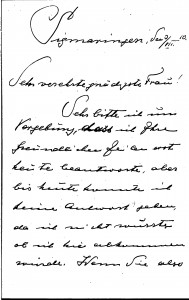 Sigmaringen, den 3/VII. 10.
Sehr verehrte gnädigste Frau!
Ich bitte ich um
Vergebung, dass ich Ihre
freundlichen
heute beantworte, aber
bis heute konnte ich
keine Antwort geben,
da ich nicht wusste
ob ich hie abkommen
würde. Wenn Sie also